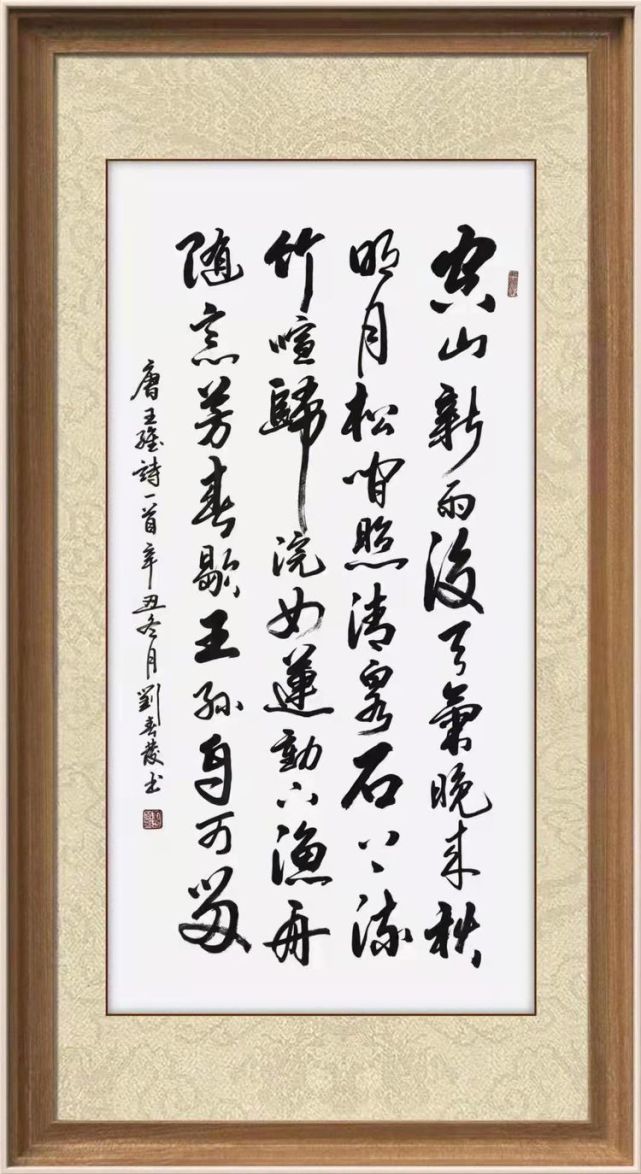 空山新雨後天氣晚来秋
明月松間照清泉石上流
竹喧歸浣女蓮動下漁舟
随意芳春歇王孫自可留
唐王維詩一首辛丑冬月劉春發书